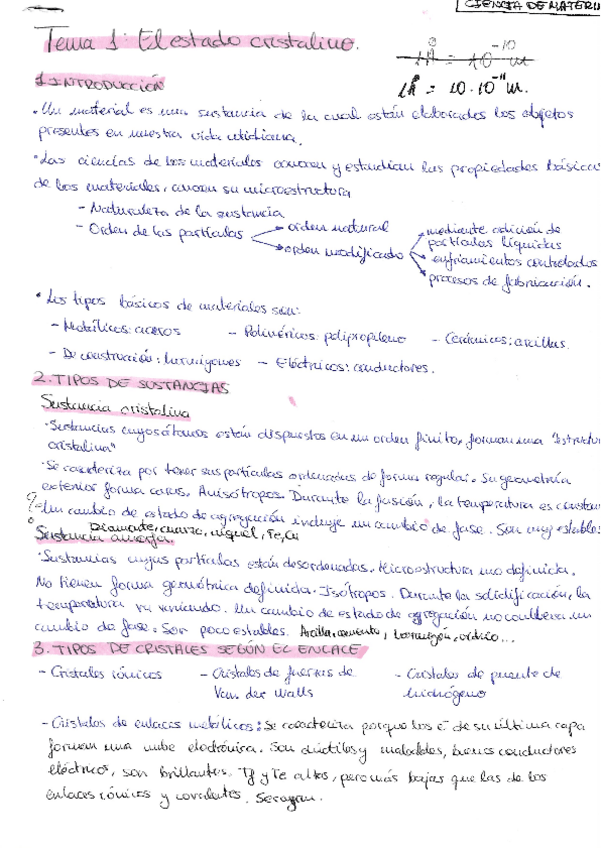 CIENCIA DE MATERI
Tema 1: El estado cristalino.
1Å = 10^-10 m
1Å = 10·10^-11 m.
1. INTRODUCCIÓN
• Un material es una sustancia de la cual están elaborados los objetos
presentes en nuestra vida cotidiana.
• Las ciencias de los materiales conocen y estudian las propiedades básicas
de los materiales, conocen su microestructura
- Naturaleza de la sustancia
- Orden de las partículas → orden natural
→ orden modificado → mediante adición de
partículas líquidas
→ enfriamientos controlados
→ procesos de fabricación.
• Los tipos básicos de materiales son:
- Metálicos: aceros - Poliméricos: polipropileno - Cerámicos: arcillas.
- De construcción: hormigones - Eléctricos: conductores.
2. TIPOS DE SUSTANCIAS
Sustancia cristalina
• Sustancias cuyos átomos están dispuestos en un orden finito, forman una "estructur
cristalina"
• Se caracteriza por tener sus partículas ordenadas de forma regular. Su geometría
exterior forma caras. Anisótropos. Durante la fusión, la temperatura es constan
¿Un cambio de estado de agregación incluye un cambio de fase. Son muy estables
Diamante, cuarzo, níquel, Fe, Cu
Sustancia amorfa
• Sustancias cuyas partículas están desordenadas. Microestructura no definida.
No tienen forma geométrica definida. Isótropos. Durante la solidificación, la
temperatura va variando. Un cambio de estado de agregación no conlleva un
cambio de fase. Son poco estables. Arcilla, cemento, hormigón, vidrio...
3. TIPOS DE CRISTALES SEGÚN EL ENLACE
- Cristales iónicos - Cristales de fuerzas de - Cristales de puente de
Van der Walls hidrógeno
- Cristales de enlaces metálicos: Se caracteriza porque los e⁻ de su última capa
forman una nube electrónica. Son dúctiles y maleables, buenos conductores
eléctricos, son brillantes. Tf y Te altos, pero más bajas que las de los
enlaces iónicos y covalentes.